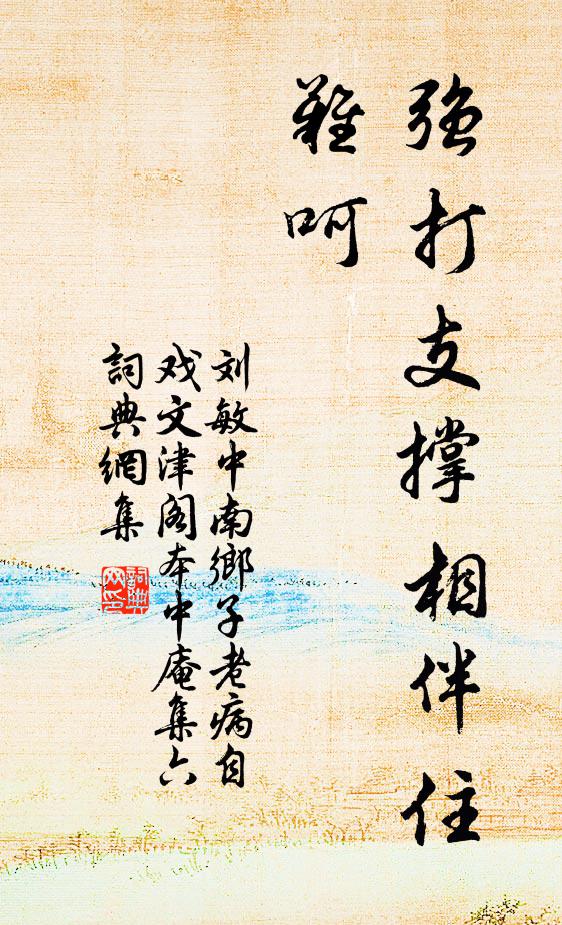 强打支撑相伴住
难呵
刘敏中南鄉子老病自
戏文津阁本中庵集六
詞典網集
詞典网印